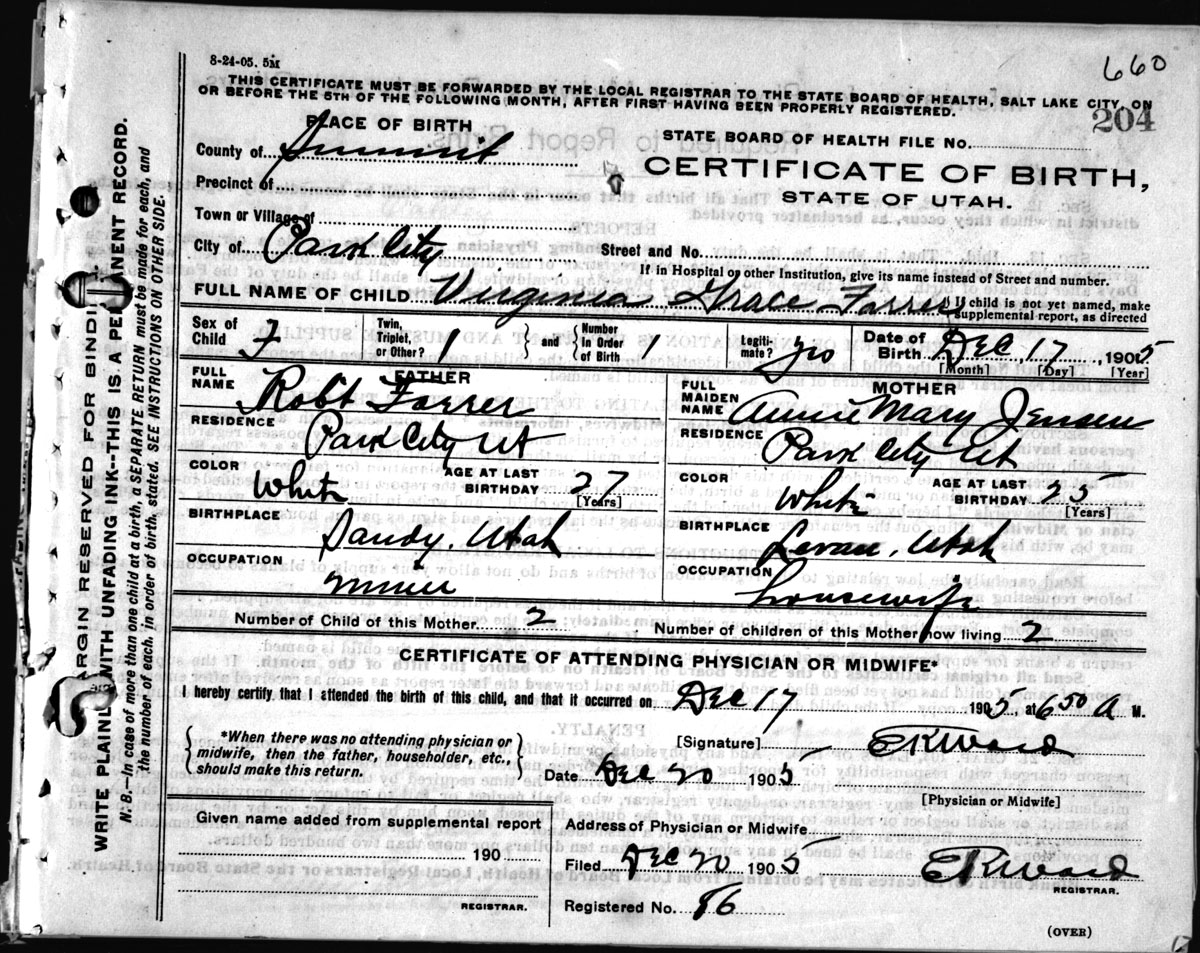 660
8-24-05. 5M
THIS CERTIFICATE MUST BE FORWARDED BY THE LOCAL REGISTRAR TO THE STATE BOARD OF HEALTH, SALT LAKE CITY, ON
OR BEFORE THE 5TH OF THE FOLLOWING MONTH, AFTER FIRST HAVING BEEN PROPERLY REGISTERED.
204
PLACE OF BIRTH
STATE BOARD OF HEALTH FILE No.
County of Summit
CERTIFICATE OF BIRTH,
Precinct of
STATE OF UTAH.
Town or Village of
City of Park City Street and No.
If in Hospital or other Institution, give its name instead of Street and number.
FULL NAME OF CHILD Virginia Grace Farrer { If child is not yet named, make supplemental report, as directed
Sex of Child F Twin, Triplet, or Other? 1 } and { Number In Order of Birth 1 Legiti- mate? yes Date of Birth Dec 17, 1905
[Month] [Day] [Year]
FATHER
MOTHER
FULL NAME Robt Farrer
FULL MAIDEN NAME Annie Mary Jensen
RESIDENCE Park City Ut
RESIDENCE Park City Ut
COLOR White AGE AT LAST BIRTHDAY 27 [Years]
COLOR White AGE AT LAST BIRTHDAY 25 [Years]
BIRTHPLACE Sandy, Utah
BIRTHPLACE Levan, Utah
OCCUPATION Miner
OCCUPATION Housewife
Number of Child of this Mother 2 Number of children of this Mother now living 2
CERTIFICATE OF ATTENDING PHYSICIAN OR MIDWIFE*
I hereby certify that I attended the birth of this child, and that it occurred on Dec 17 1905, at 6 50 A M.
{ *When there was no attending physician or
midwife, then the father, householder, etc.,
should make this return. }
[Signature] E K Ward
Date Dec 20 1905
[Physician or Midwife]
Given name added from supplemental report
Address of Physician or Midwife
190
Filed Dec 20 1905 E K Ward
REGISTRAR.
REGISTRAR.
Registered No. 96
(OVER)
MARGIN RESERVED FOR BINDING
WRITE PLAINLY WITH UNFADING INK--THIS IS A PERMANENT RECORD.
N. B.--In case of more than one child at a birth, a SEPARATE RETURN must be made for each, and
the number of each, in order of birth, stated. SEE INSTRUCTIONS ON OTHER SIDE.